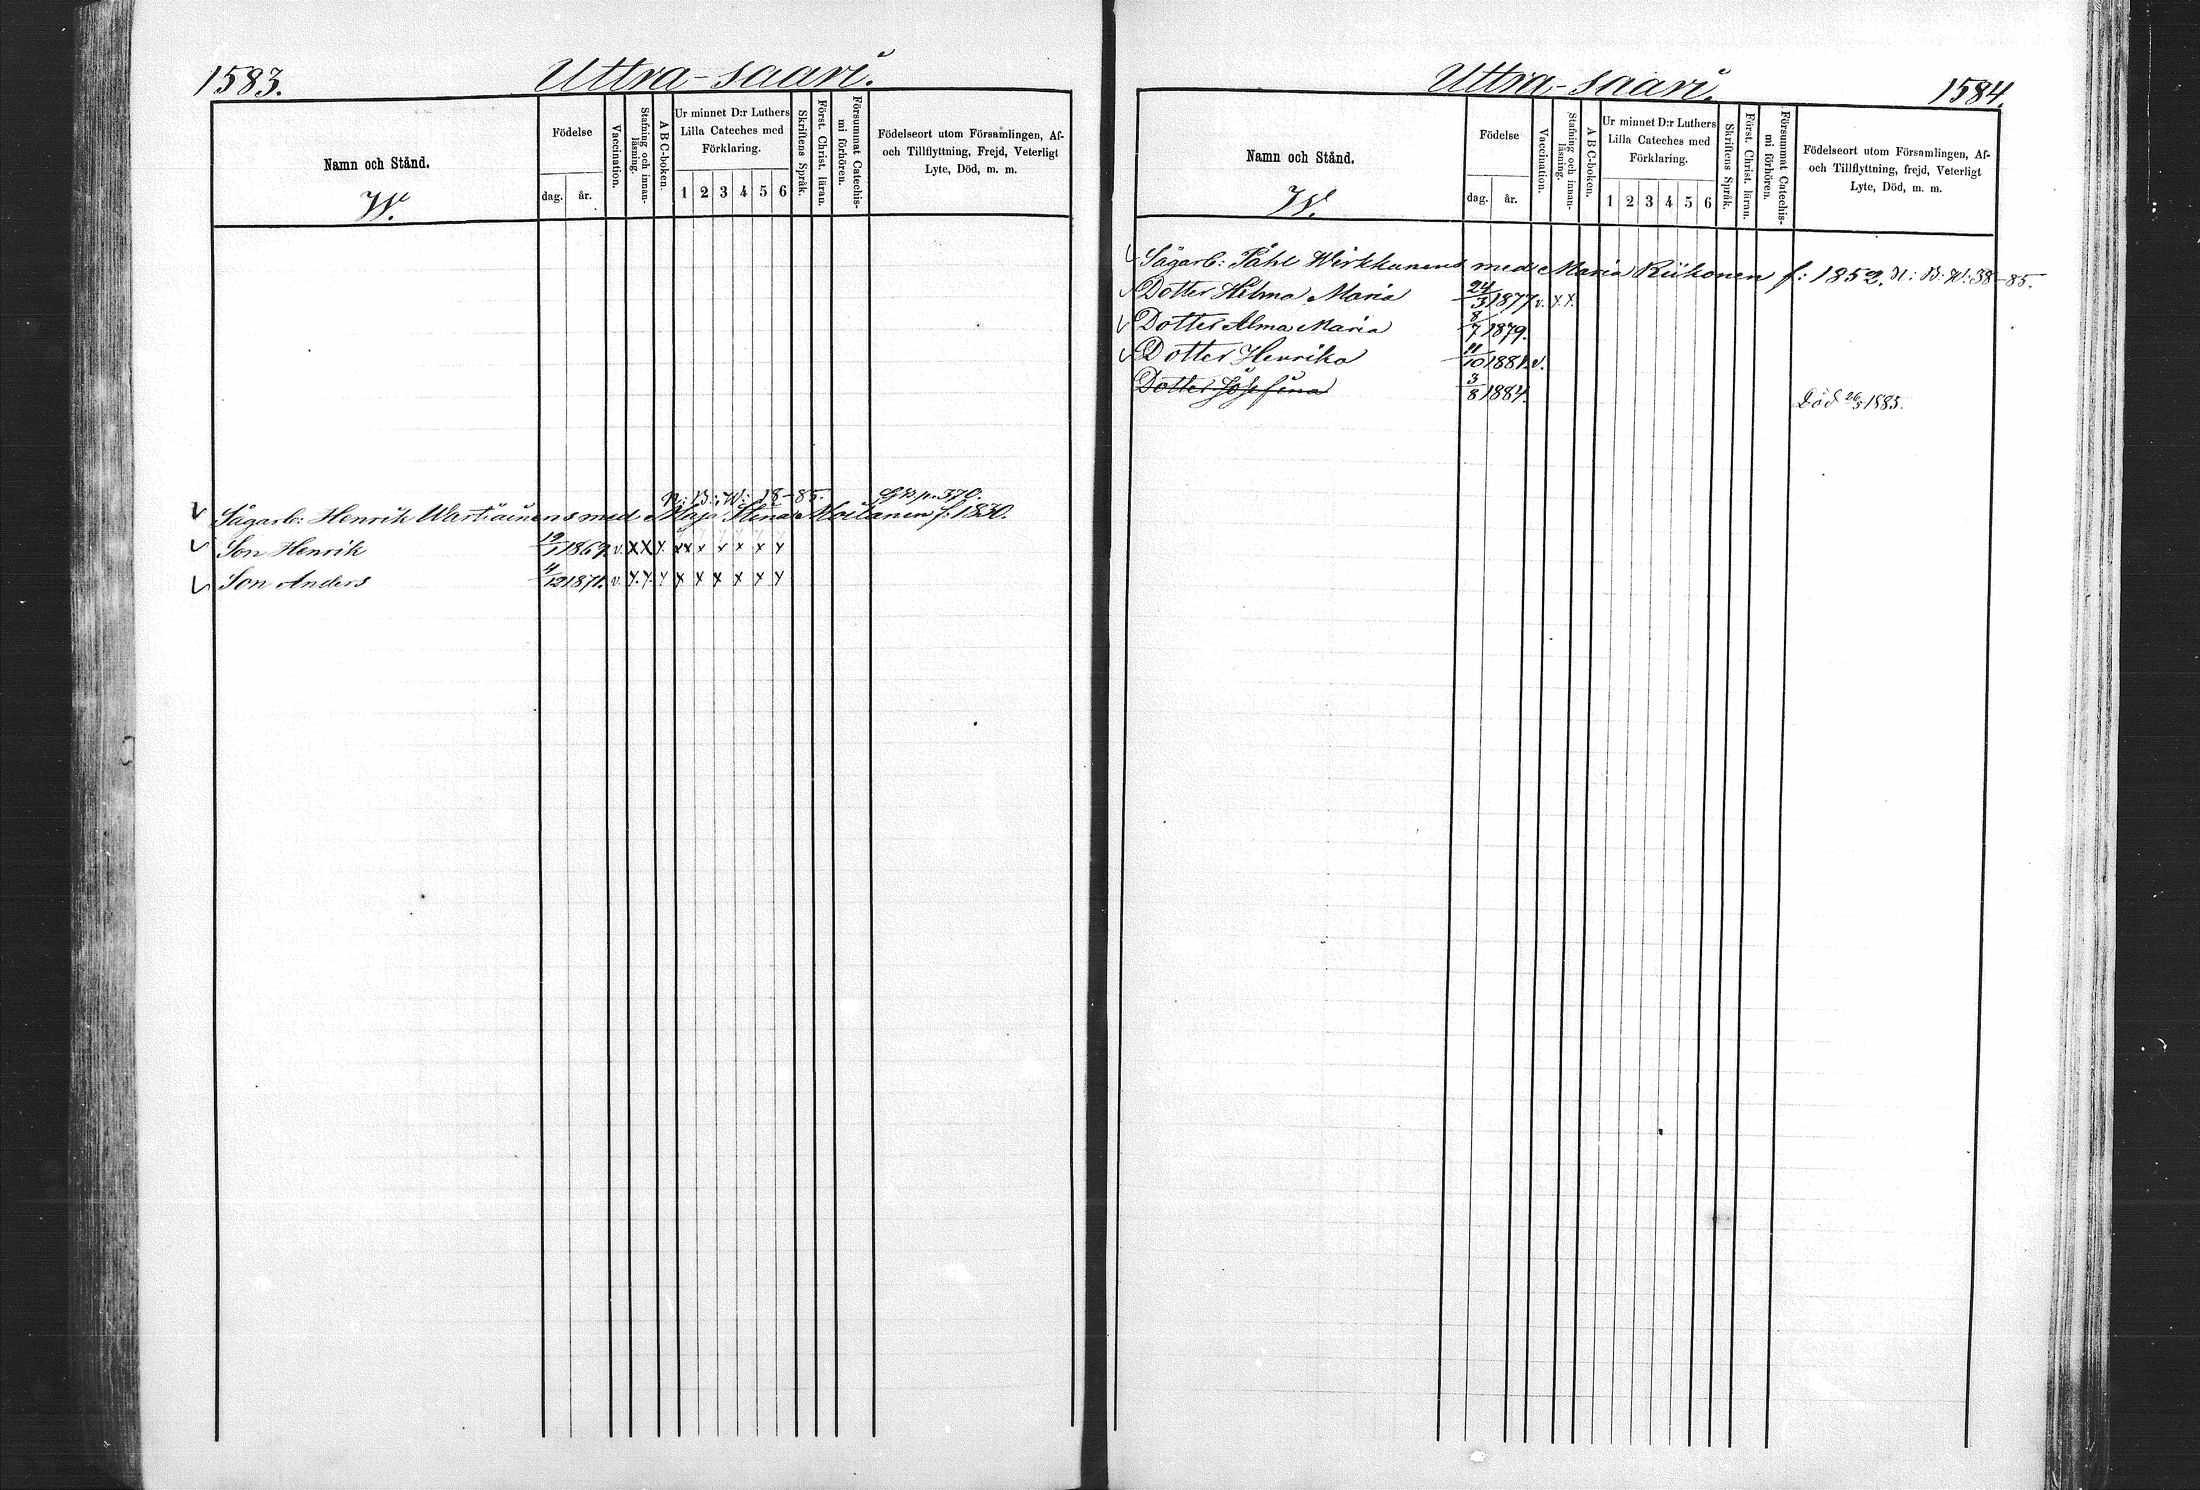 1583.
Uttra-saari.
Namn och Stånd.
W.
Födelse
dag.
år.
Vaccination.
Stafning och innan-
läsning.
A B C-boken.
Ur minnet D:r Luthers
Lilla Cateches med
Förklaring.
1 2 3 4 5 6
Skriftens Språk.
Först. Christ. läran.
Försummat Catechis-
mi förhören.
Födelseort utom Församlingen, Af-
och Tillflyttning, Frejd, Veterligt
Lyte, Död, m. m.
N: B: W: 18-85.
Sågarb: Henrik Wartiainens med Maja Stina Moilanen f: 1830.
Son Henrik 19/1 1869. v. X X Y. xx x x x x Y
Son Anders 4/12 1871. v. Y. Y. Y x x x x x Y
Uttra-saari.
1584.
Namn och Stånd.
W.
Födelse
dag.
år.
Vaccination.
Stafning och innan-
läsning.
A B C-boken.
Ur minnet D:r Luthers
Lilla Cateches med
Förklaring.
1 2 3 4 5 6
Skriftens Språk.
Först. Christ. läran.
Försummat Catechis-
mi förhören.
Födelseort utom Församlingen, Af-
och Tillflyttning, frejd, Veterligt
Lyte, Död, m. m.
Sågarb: Påhl Wirkkunens med Maria Riikonen f: 1852. N: B: W: 38-85.
Dotter Helma Maria 24/3 1877. v. x x.
Dotter Alma Maria 8/7 1879.
Dotter Henrika 11/10 1881. v.
Dotter Josefina 3/8 1884. Död 26/5 1885.